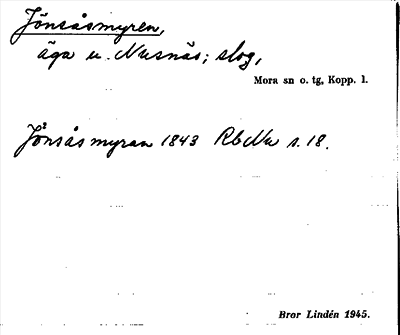 Jönsåsmyren,
äga u. Nusnäs; slog,
Mora sn o. tg, Kopp. l.
Jönsåsmyran 1843 RbNu s. 18.
Bror Lindén 1945.